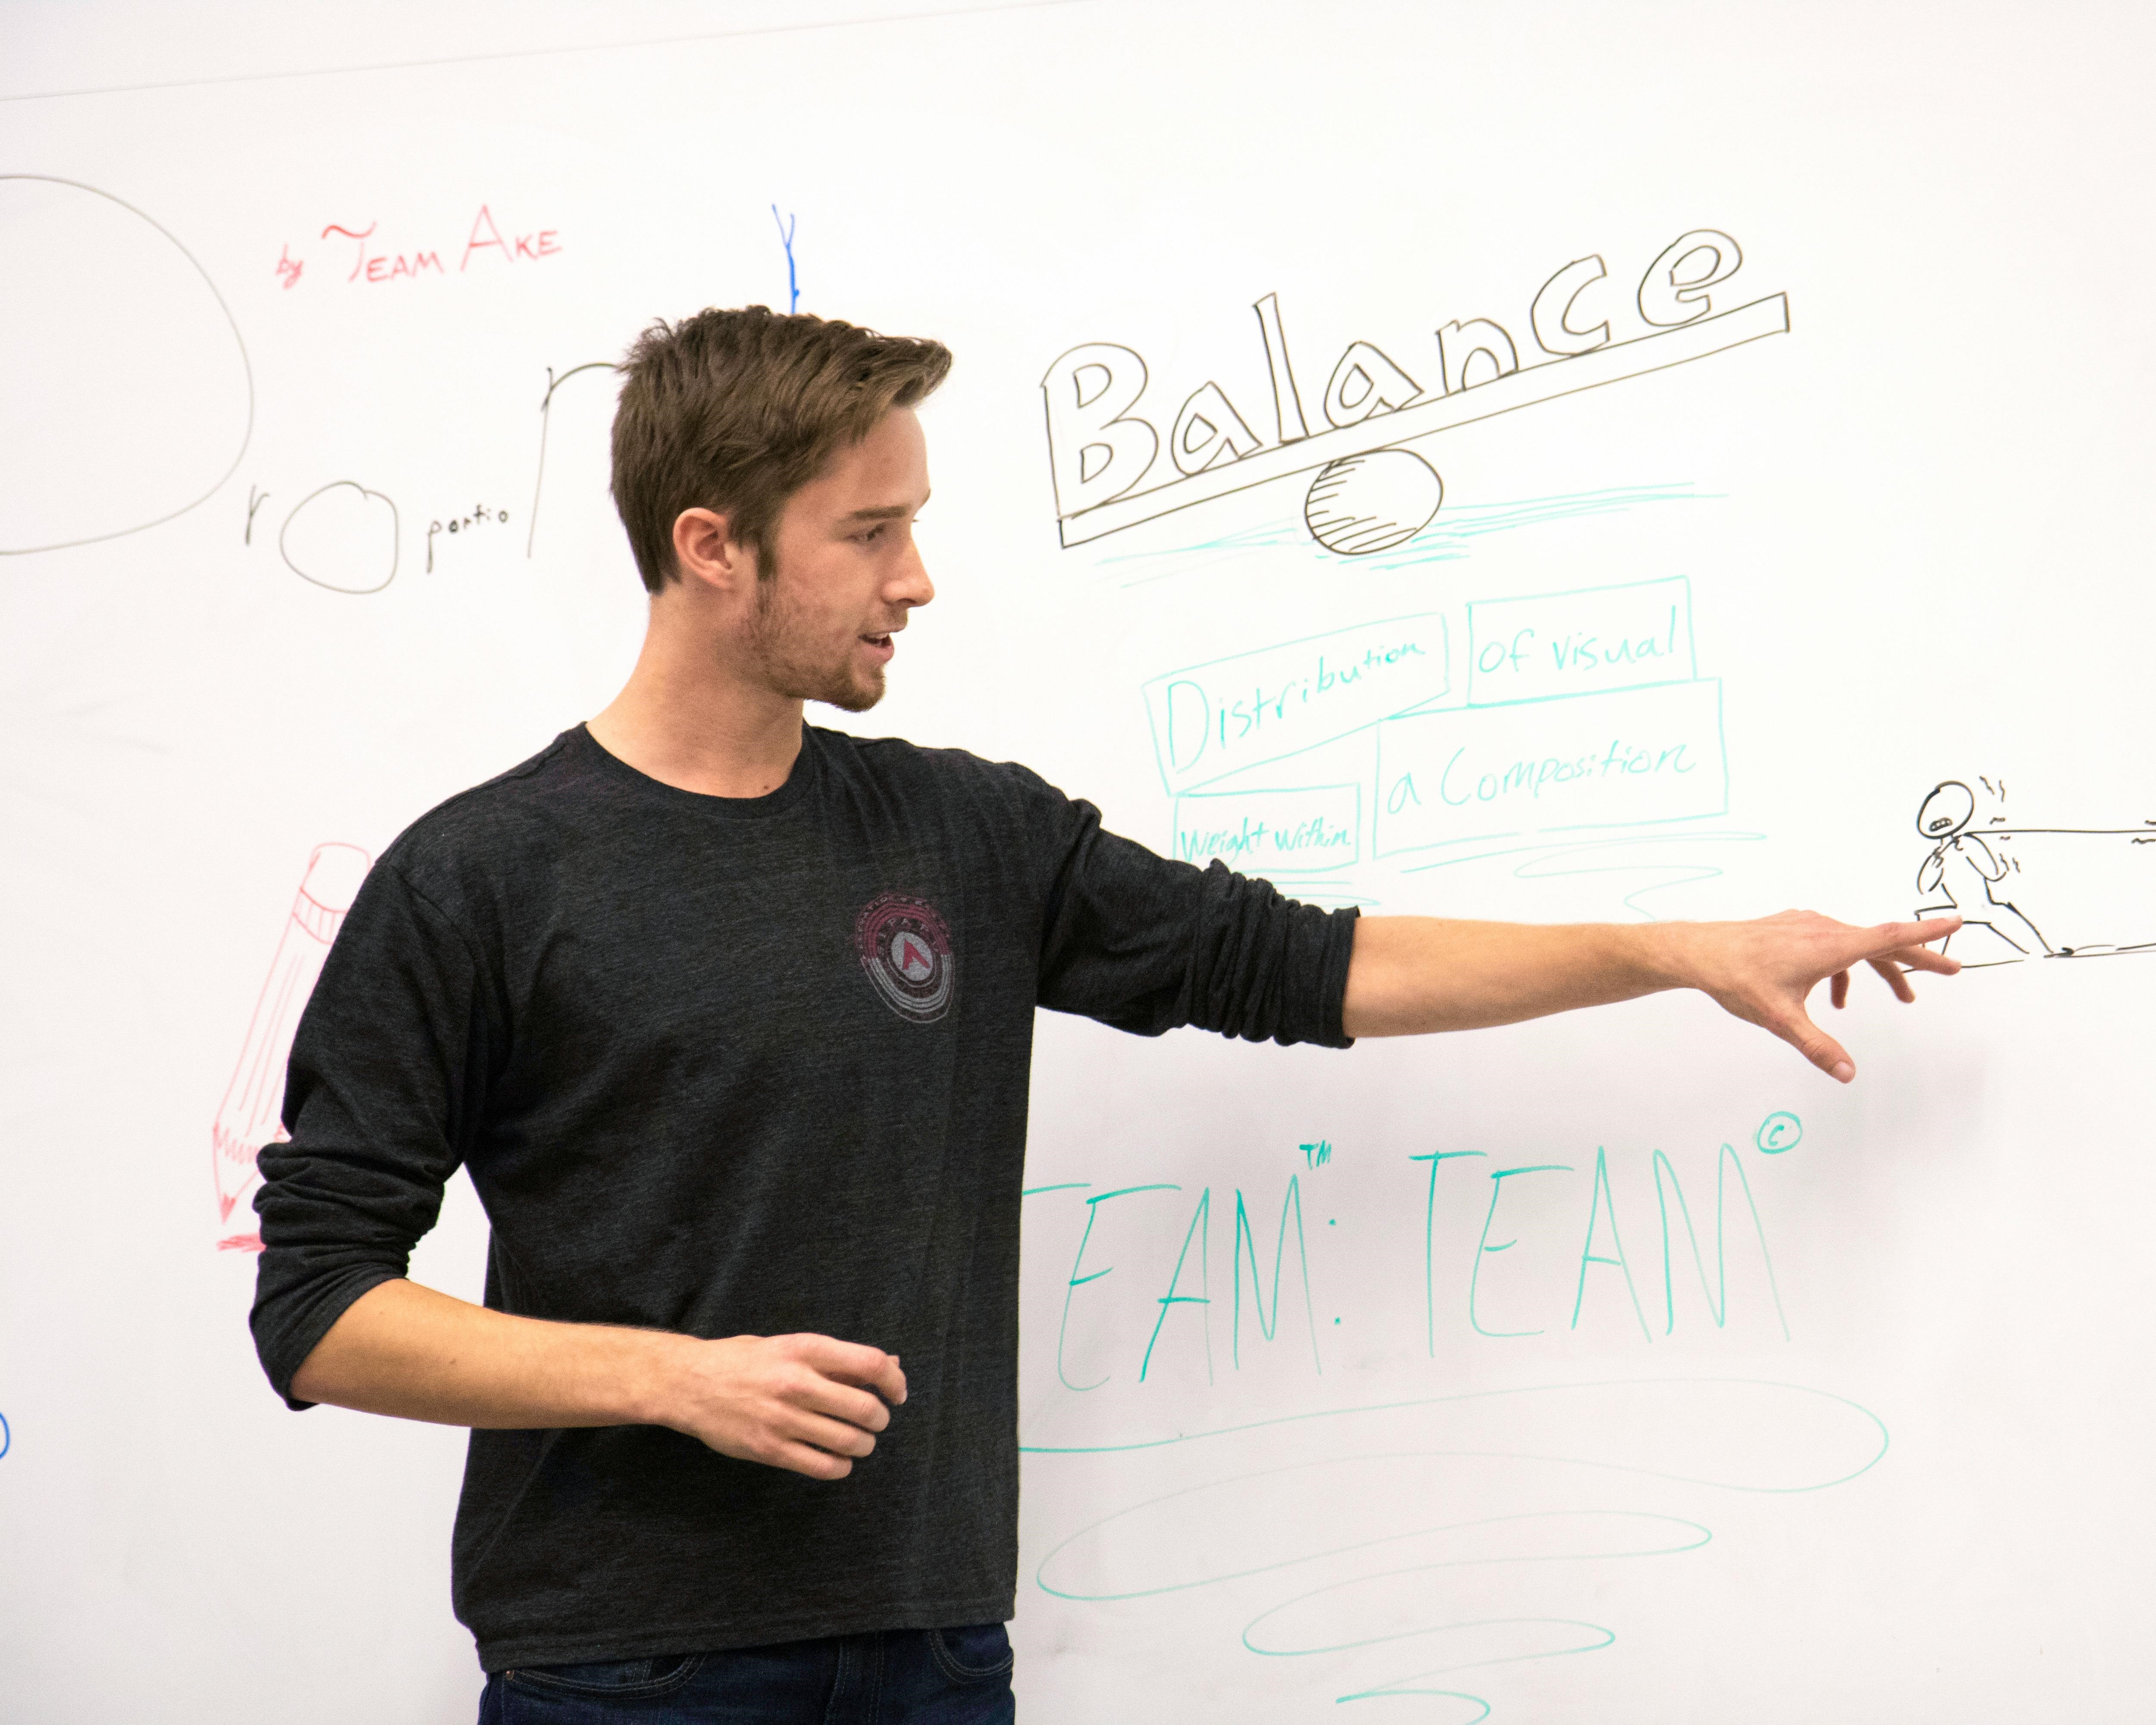 by TEAM AKE
r o portio n
Balance
Distribution of visual
weight within a Composition
TEAM™: TEAM©